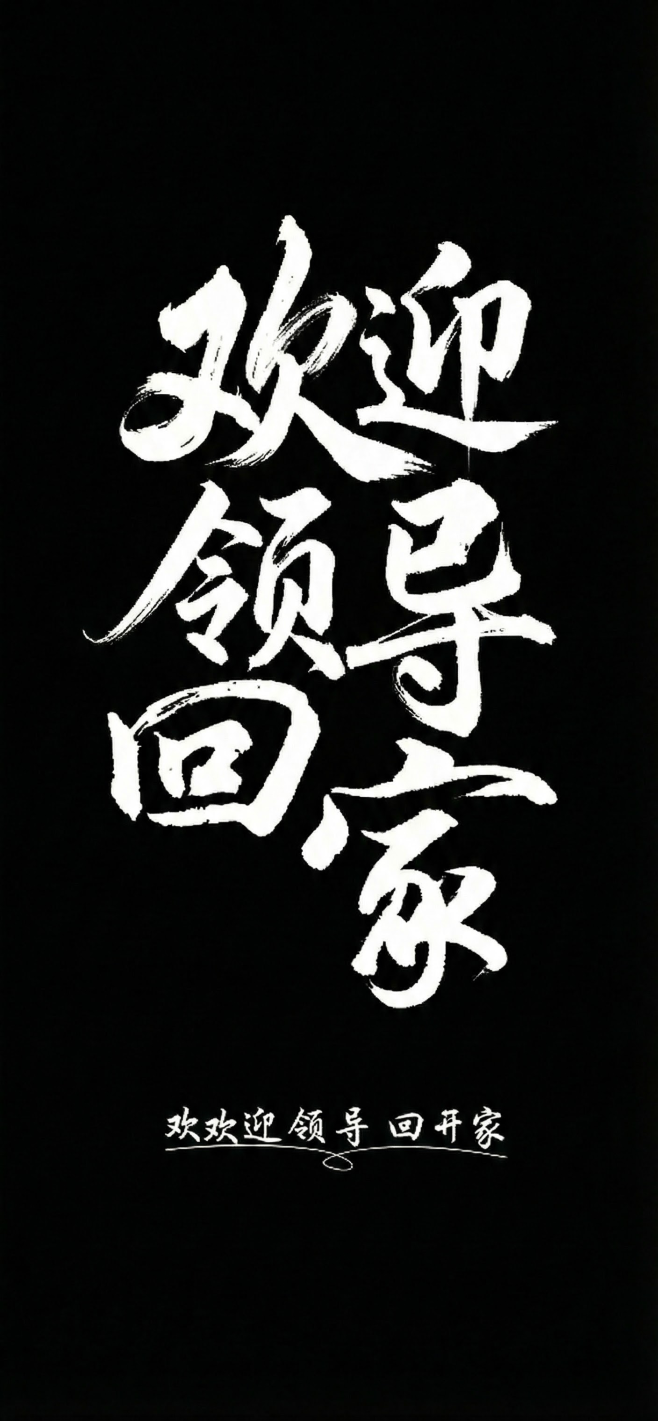 欢迎
领导
回家
欢欢迎领导回开家